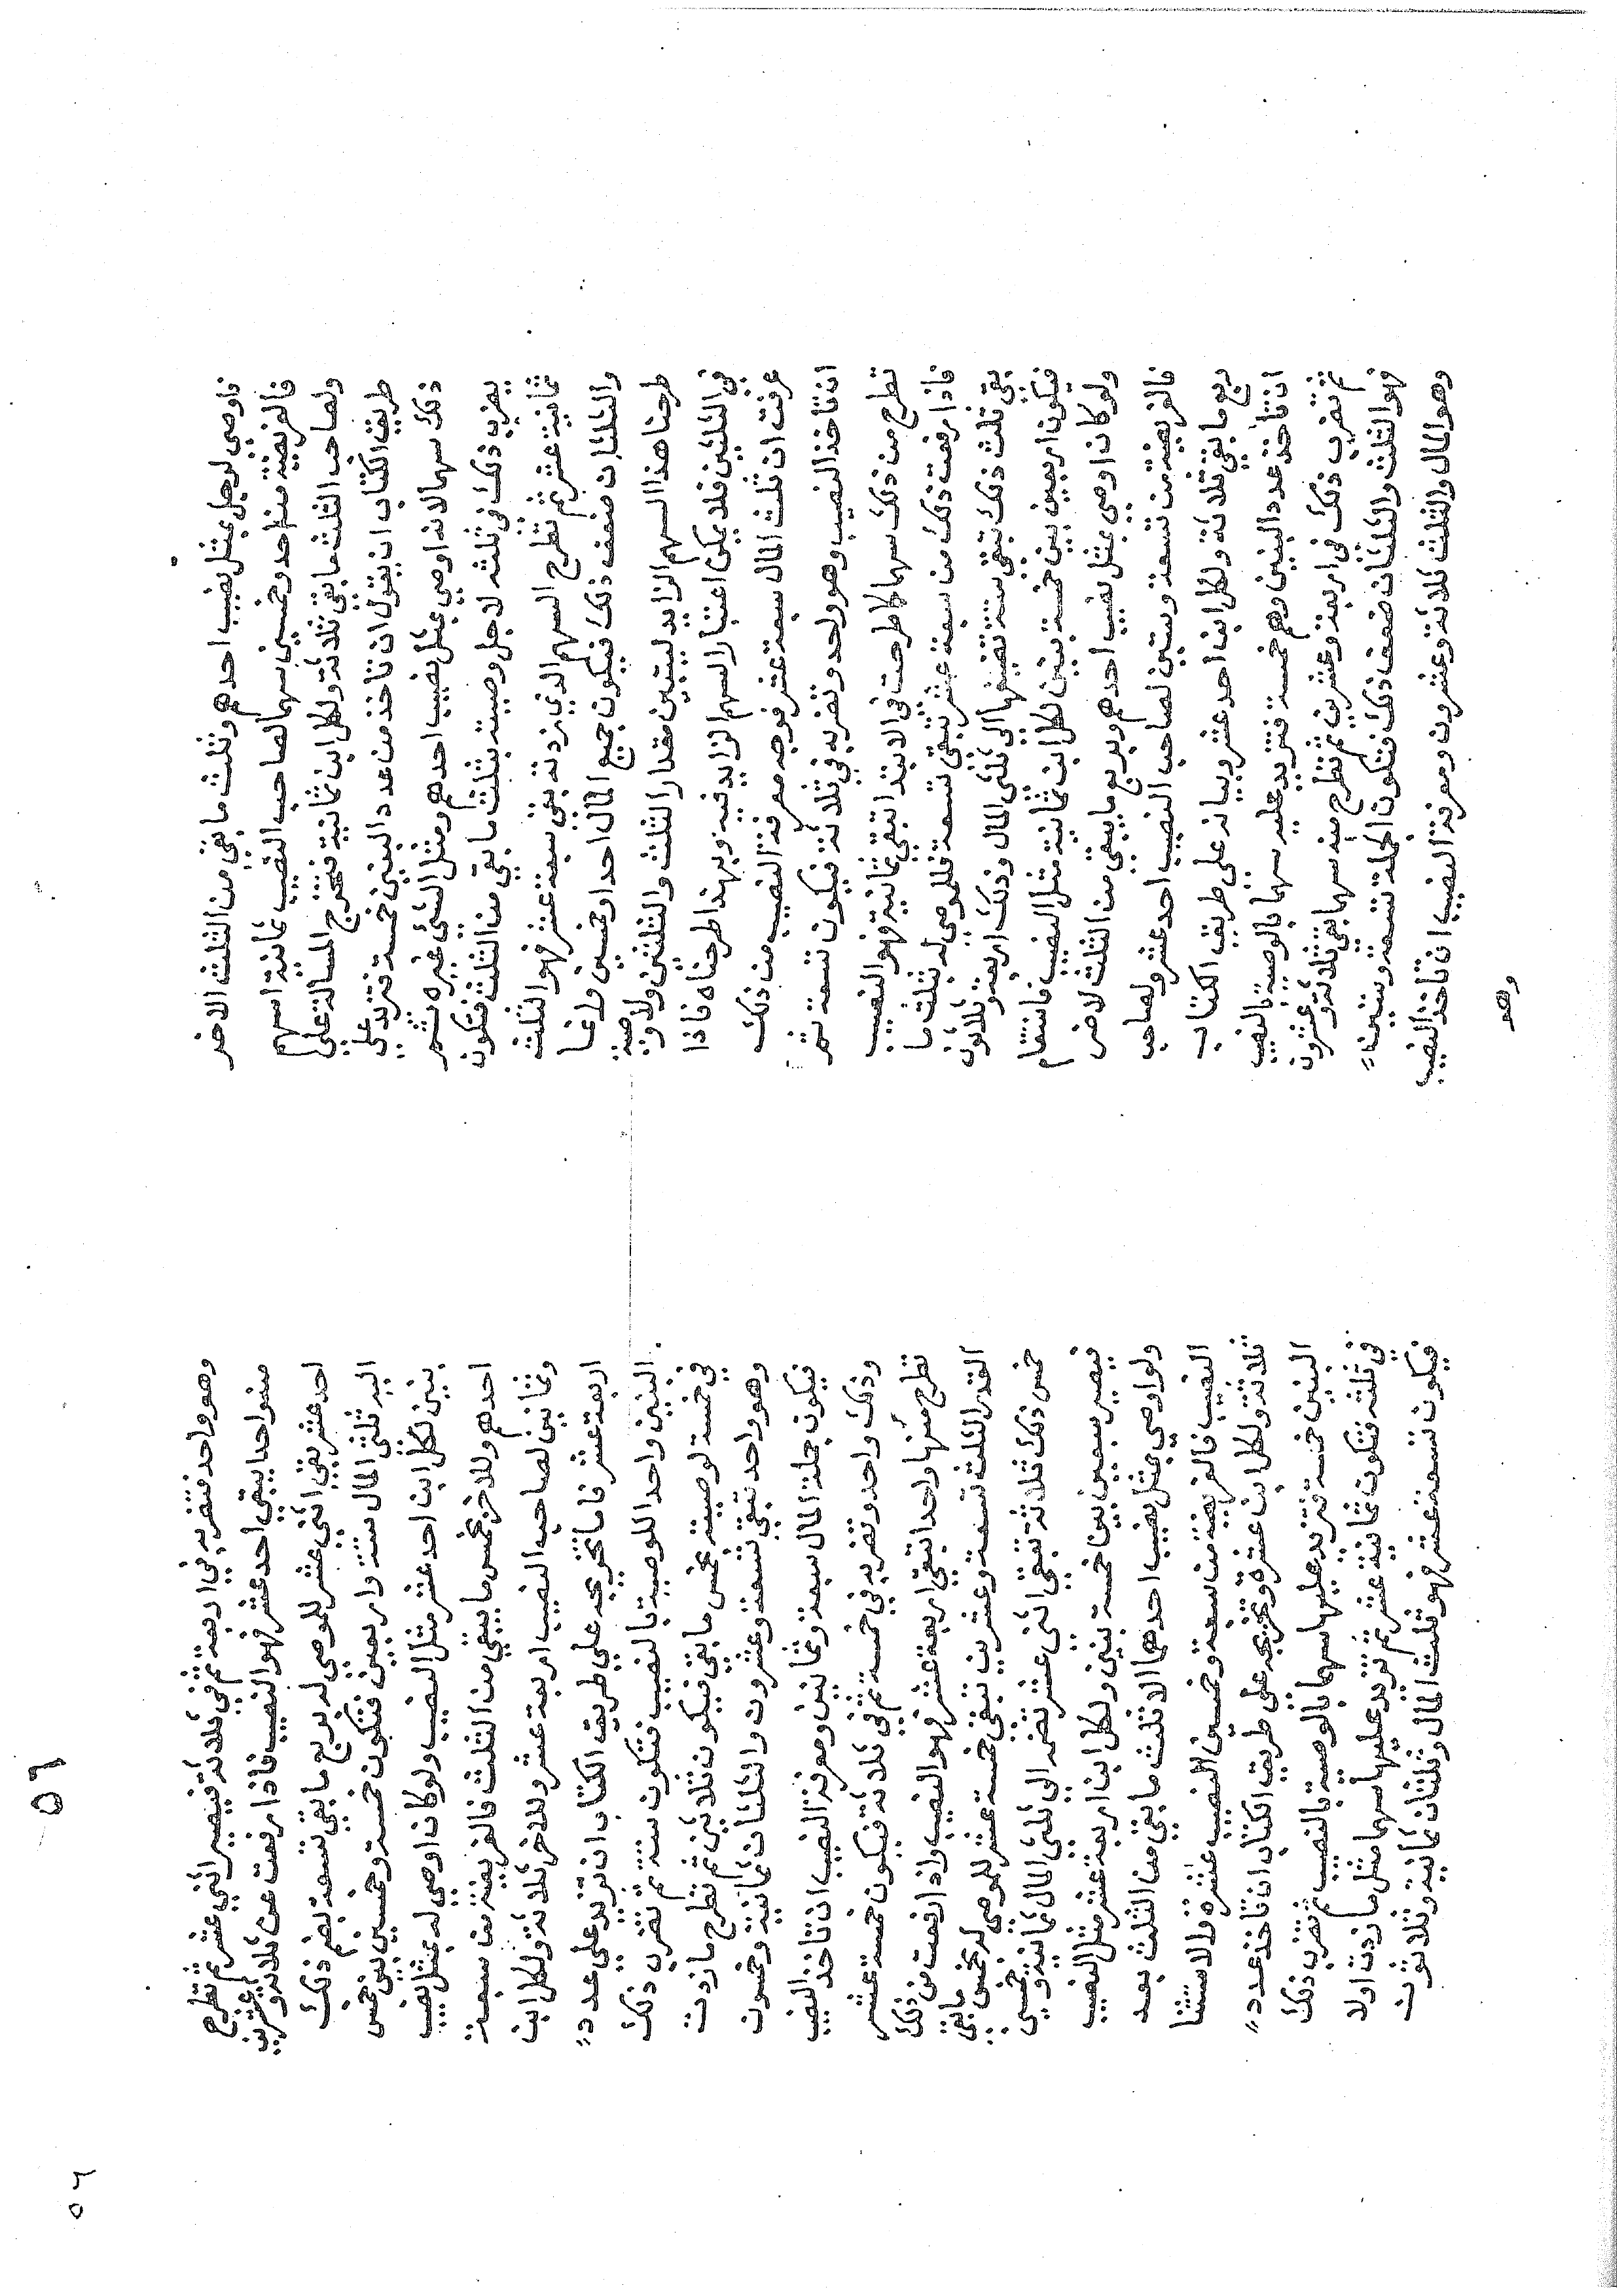 فاوصى لرجل بمثل نصيب احدهم وثلث ما بقي من الثلث الاخر
فالفريضة من احد وخمسين سهما لصاحب النصيب ثمانية اسهم
ولصاحب الثلث ما بقي ثلاثة ولكل ابن ثمانية فتخرج المسالة على
طريق الكتاب ان يقول ان تاخذ من عدد البنين خمسة فتزيد على
ذلك سهما لانه اوصي بمثل نصيب احدهم ومثل الشئ غيره ثم
يضرب ذلك في ثلثه لاجل وصيته بثلث ما بقي من الثلث فتكون
ثمانية عشر ثم تطرح السهم الذي زدته بقي سبعة عشر فهو الثلث
والثلثان ضعف ذلك فيكون جميع المال احدا وخمسين وانما
طرحنا هذا السهم الزايد ليتبين مقدار الثلث والثلثين ولا وصية
في الثلثين فلا يمكن اعتبار السهم الزايد فيه وبهذا طرحناه فاذا
عرفت ان ثلث المال سبعة عشر فوجه معرفة النصيب من ذلك
ان تاخذ النصيب وهو واحد وتضربه في ثلاثة فيكون تسعة ثم
تطرح من ذلك سهما كما طرحت في الابتدا تبقي ثمانية فهو النصيب
فاذا رفعت ذلك من سبعة عشر تبقى تسعة فللموصي له بثلث ما
بقي ثلث ذلك تبقي ستة تضيفها الى ثلثي المال وذلك اربعة وثلاثون
فيكون اربعين بين خمسة بنين لكل ابن ثمانية مثل النصيب فاستقام
ولو كان اوصي بمثل نصيب احدهم وبربع ما يبقي من الثلث لاخر
فالفريضة من تسعة وستين لصاحب النصيب احد عشر ولصاحب
ربع ما بقي ثلاثة ولكل ابن احد عشر وبيانه على طريق الكتاب
ان تاخذ عدد البنين وهم خمسة فتزيد عليه سهما بالوصية بالنصيب
ثم تضرب ذلك في اربعة وعشرين ثم تطرح منه سهما بقي ثلاثة وعشرون
فهو الثلث والثلثان ضعف ذلك فتكون الجملة تسعة وستين
وهو المال والثلث ثلاثة وعشرون ومعرفة النصيب ان تاخذ النصيب
وهو
وهو واحد فتضربه في اربعة ثم في ثلاثة فيصير اثني عشر ثم تطرح
منه واحدا يبقي احد عشر فهو النصيب فاذا رفعت من ثلاثة وعشرين
احد عشر بقي اثني عشر للموصي له بربع ما بقي تسعة بضم ذلك
اليه ثلثي المال ستة واربعين فتكون خمسة وخمسين بين خمس
بنين لكل ابن احد عشر مثل النصيب ولو كان اوصي له بمثل نصيب
احدهم وللاخر بخمس ما يبقي من الثلث فالفريضة من سبعة
وثمانين لصاحب النصيب اربعة عشر وللاخر ثلاثة ولكل ابن
اربعة عشر فاما تخريجه علي طريق الكتاب ان تزيد علي عدد
البنين واحد اللوصية بالنصيب فتكون ستة ثم تضرب ذلك
في خمسة لوصيته بخمس ما بقي فيكون ثلاثين ثم تطرح ما زدت
وهو واحد تبقي تسعة وعشرون والثلثان ثمانية وخمسون
فيكون جملة المال سبعة وثمانين ومعرفة النصيب ان تاخذ النصيب
وذلك واحد وتضربه في خمسة ثم في ثلاثة فيكون خمسة عشر
تطرح منها واحدا تبقي اربعة عشر فهو النصيب واذا رفعت من ذلك
القدر الثلث تسعة وعشرين تبقى خمسة عشر للموصي له بخمس ما بقي
خمس ذلك ثلاثة تبقي اثني عشر تضمه الى ثلثي المال ثمانية وخمسين
فيصير سبعين بين خمسة بنين ولكل ابن اربعة عشر مثل النصيب
ولو اوصي بمثل نصيب احدهما الا ثلث ما بقي من الثلث بعد
النصيب فالفريضة من سبعة وخمسين النصيب عشرة والاستثنا
ثلاثة ولكل ابن عشرة وتخريجه على طريق الكتاب ان تاخذ عدد
البنين خمسة فتزيد عليها سهما بالوصية بالنصيب ثم تضرب ذلك
في ثلثه فتكون ثمانية عشر ثم تزيد عليها سهما مثل ما زدت اولا
فيكون تسعة عشر فهو ثلث المال وثلثان ثمانية وثلاثون
٥٦